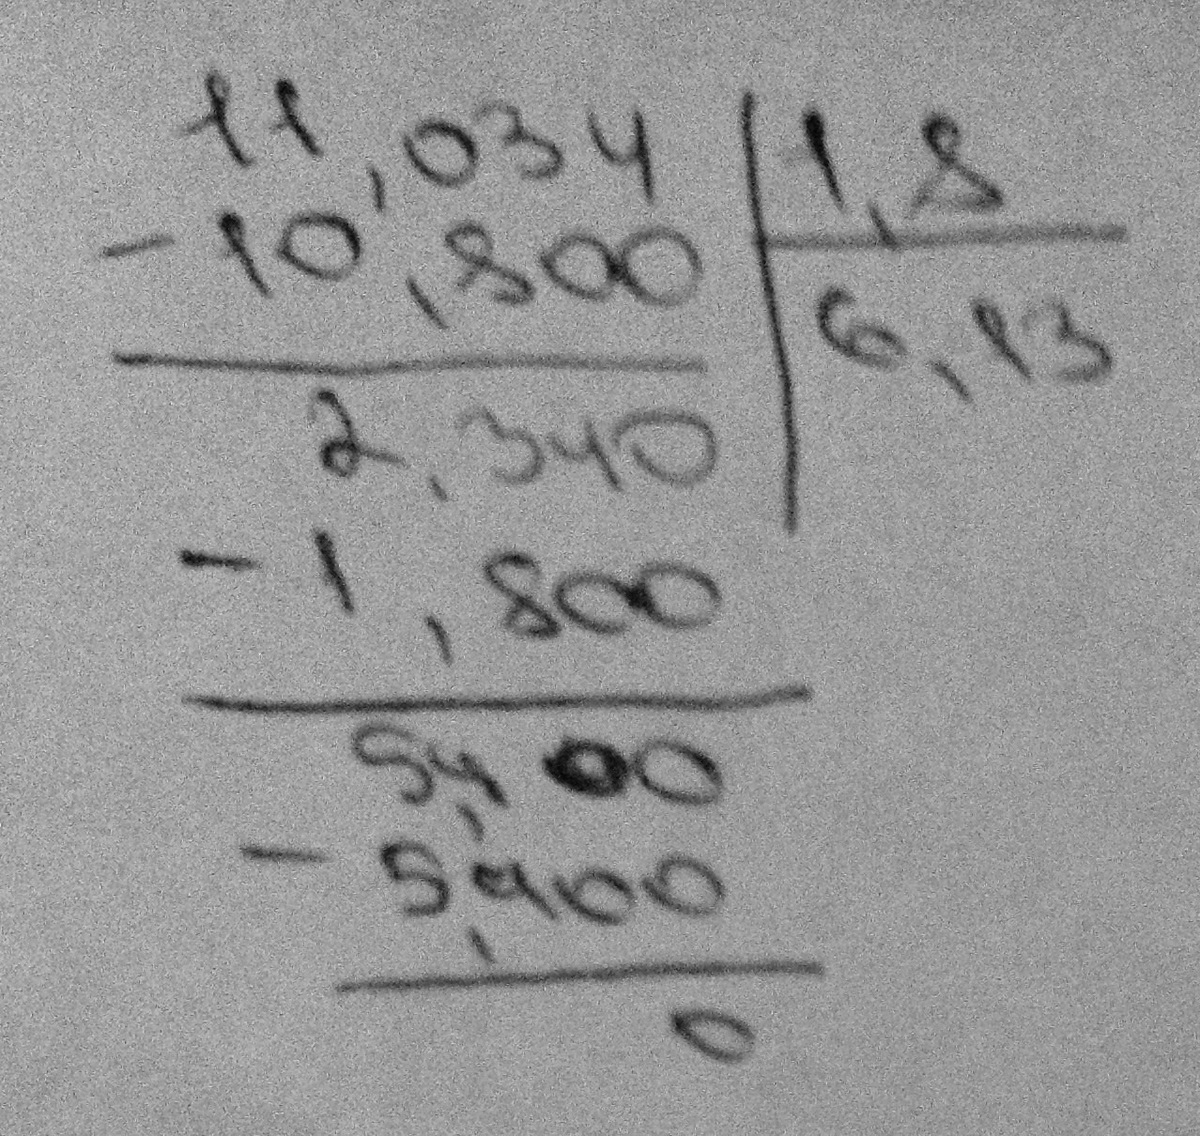 11,034 | 1,8
-10,800 | 6,13
2,340
-1,800
5,400
-5,400
0